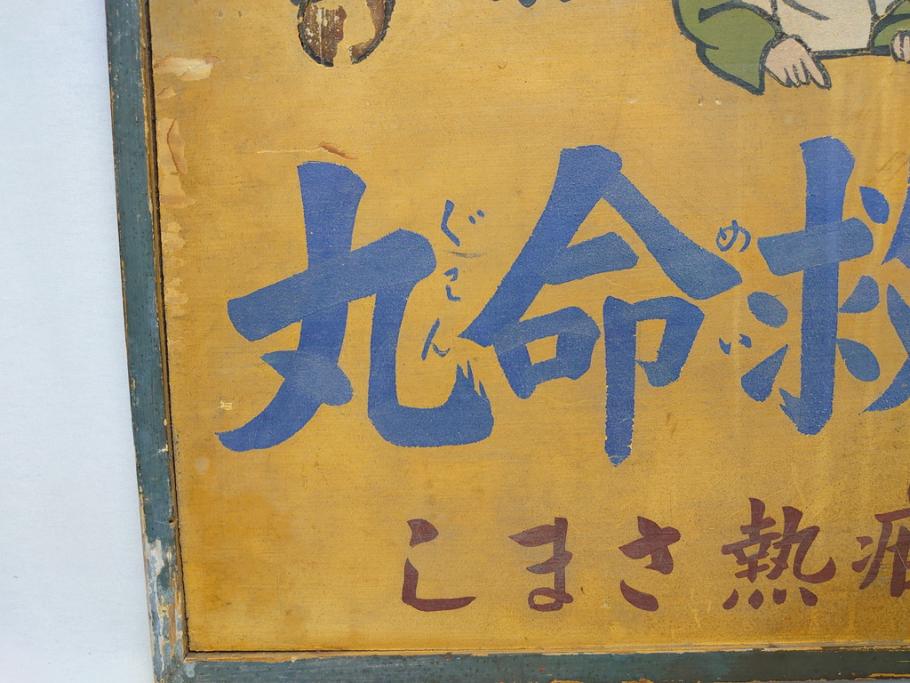 救命丸
めい
ぐわん
熱さまし